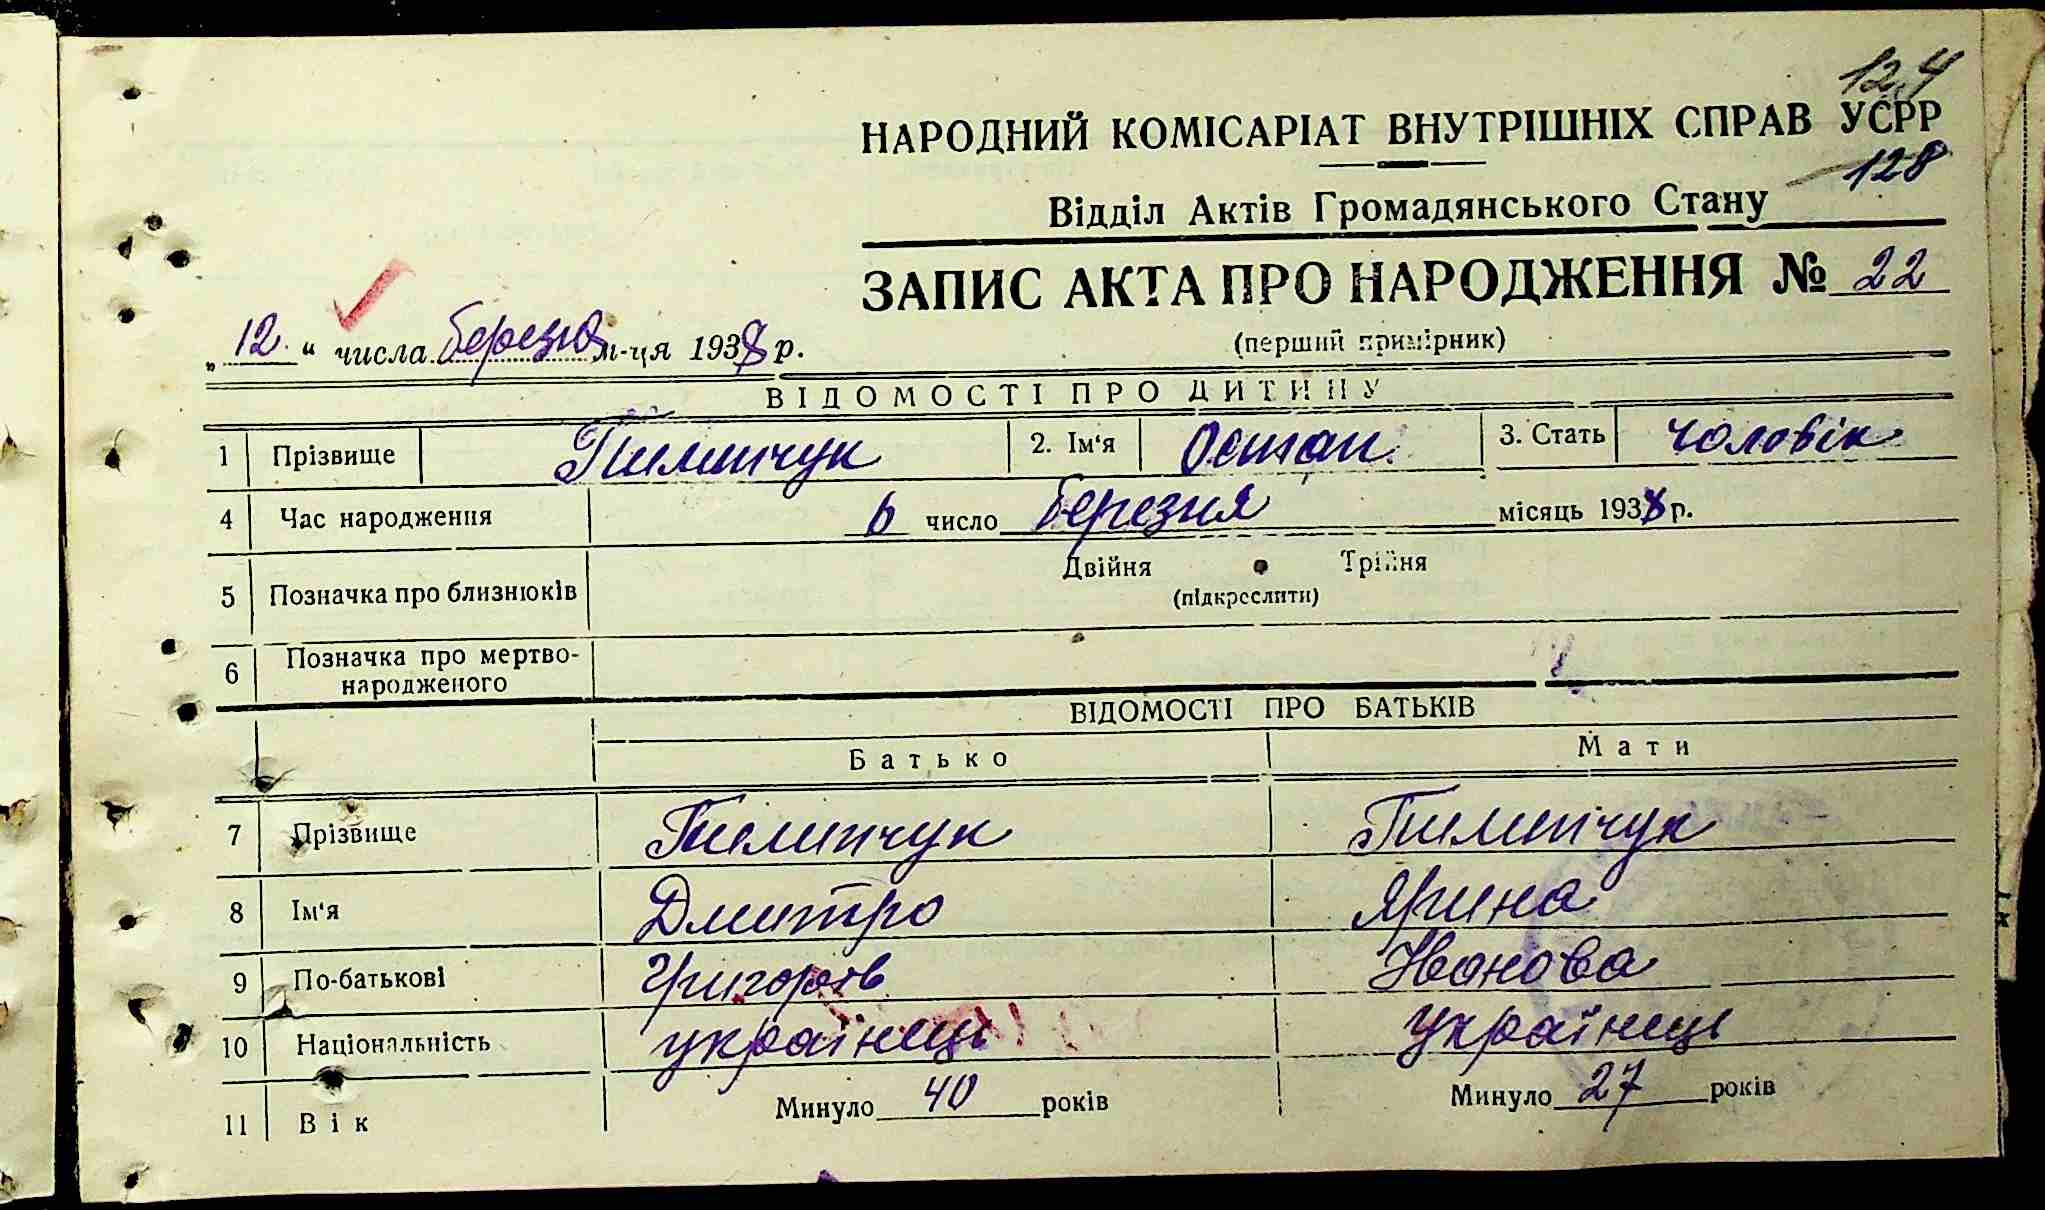 124
НАРОДНИЙ КОМІСАРІАТ ВНУТРІШНІХ СПРАВ УСРР
128
Відділ Актів Громадянського Стану
ЗАПИС АКТА ПРО НАРОДЖЕННЯ № 22
„ 12 “ числа березня м-ця 1938 р.
(перший примірник)
ВІДОМОСТІ ПРО ДИТИНУ
1 Прізвище Пилипчук 2. Ім‘я Остап 3. Стать чоловік
4 Час народження 6 число березня місяць 1938 р.
5 Позначка про близнюків Двійня Трійня
(підкреслити)
6 Позначка про мертво-
народженого
ВІДОМОСТІ ПРО БАТЬКІВ
Батько Мати
7 Прізвище Пилипчук Пилипчук
8 Ім‘я Дмитро Ярина
9 По-батькові Григорів Иванова
10 Національність українець українець
11 Вік Минуло 40 років Минуло 27 років